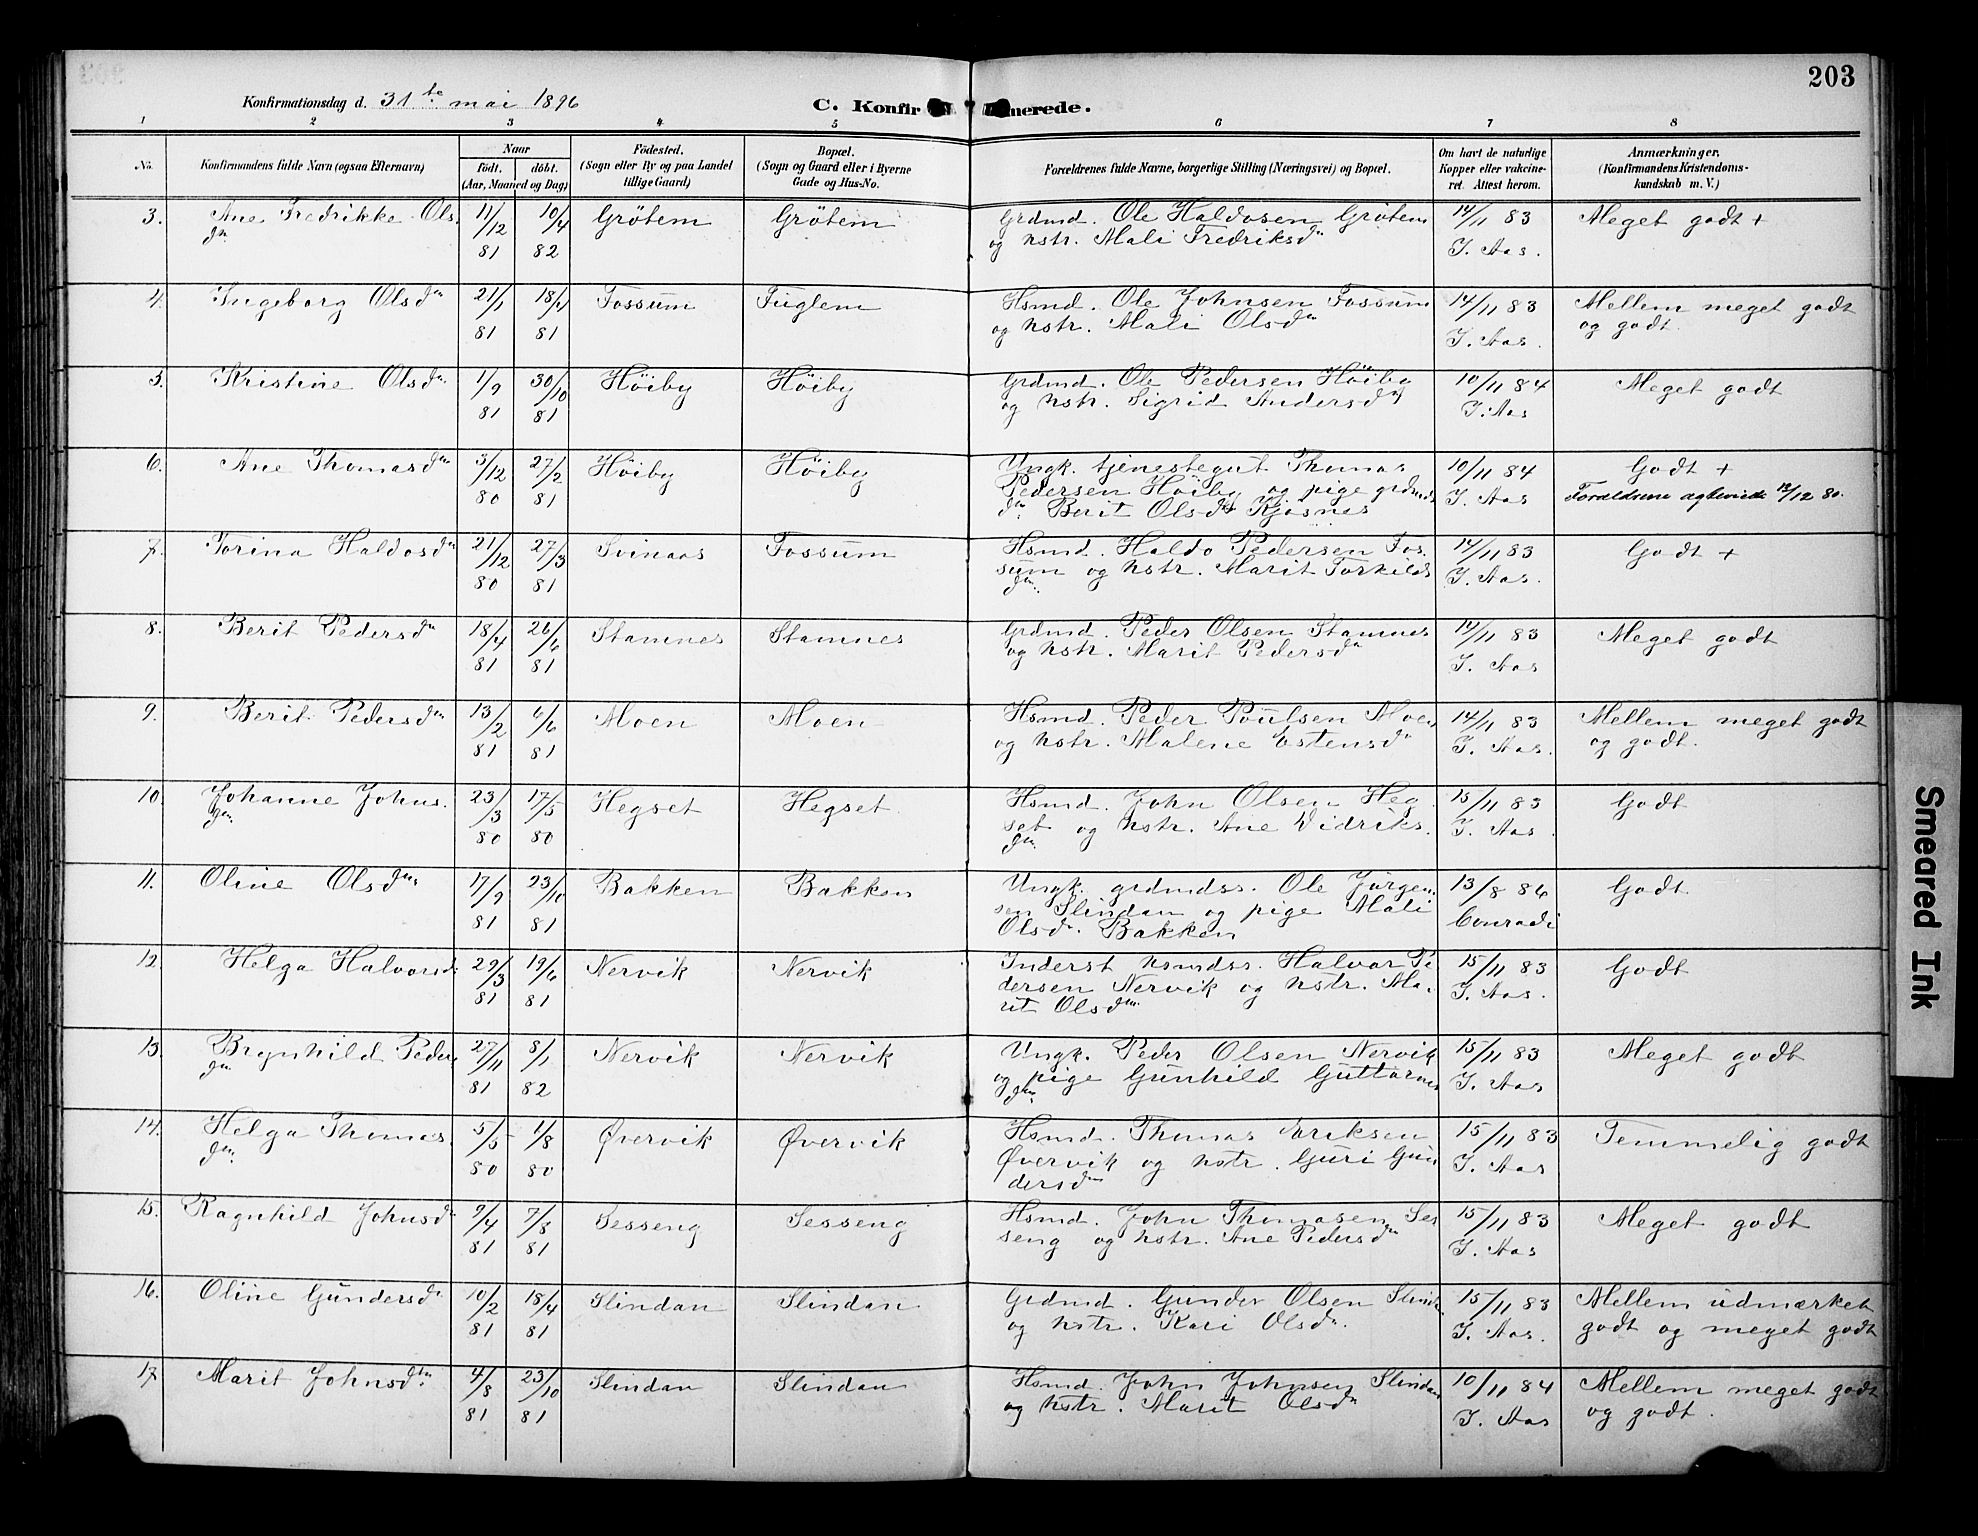 203
Konfirmationsdag d. 31te mai 1896
C. Konfir merede.
1 2 3 4 5 6 7 8
No. Konfirmandens fulde Navn (ogsaa Efternavn) Naar födt. döbt. (Aar, Maaned og Dag) Födested. (Sogn eller By og paa Landet tillige Gaard) Bopæl. (Sogn og Gaard eller i Byerne Gade og Hus-No. Forældrenes fulde Navne, borgerlige Stilling (Næringsvei) og Bopæl. Om havt de naturlige Kopper eller vakcineret. Attest herom. Anmærkninger. (Konfirmandens Kristendomskundskab m. V.)
3. Ane Fredrikke Ols. 11/12 10/4 Grötem Grötem Grdmd. Ole Haldosen Grötem 14/11 83 Meget godt +
dn 81 82 og hstr. Mali Fredriksdn I. Aas.
4. Ingeborg Olsdn 21/1 18/4 Fossum Fuglem Hsmd. Ole Johnsen Fossum 14/11 83 Mellem meget godt
81 81 og hstr. Mali Olsdn I. Aas. og godt.
5. Kristine Olsdn. 1/9 30/10 Höiby Höiby Grdmd. Ole Pedersen Höiby 10/11 84 Meget godt
81 81 og hstr. Sigrid Andersdn I. Aas
6. Ane Thomasdn 3/12 27/2 Höiby Höiby Ungk. tjenestegut Thomas 10/11 84 Godt +
80 81 Pedersen Höiby og pige grdmds I. Aas
dn. Berit Olsdn Kjösnes
7. Torina Haldosdn 21/12 27/3 Svinaas Fossum Hsmd. Haldo Pedersen Fos- 14/11 83 Godt +
80 81 sum og hstr. Marit Torkilds I. Aas.
dn.
8. Berit Pedersdn 18/4 26/6 Stamnes Stamnes Grdmd. Peder Olsen Stamnes 14/11 83 Meget godt
81 81 og hstr. Marit Pedersdn I. Aas
9. Berit Pedersdn 13/2 6/6 Moen Moen Hsmd. Peder Poulsen Moen 14/11 83 Mellem meget godt
81 81 og hstr. Malene Estensdn I. Aas. og godt.
10. Johanne Johns. 23/3 17/5 Hegset Hegset. Hsmd. John Olsen Heg 15/11 83 Godt
dn. 80 80 set og hstr. Ane Vidriks. I. Aas.
dn.
11. Oline Olsdn. 17/9 23/10 Bakken Bakken Ungk. grdmdss. Ole Jörgen- 13/8 86 Godt.
81 81 sen Slindan og pige Mali Conradi
Olsdn. Bakken
12. Helga Halvorsd. 29/3 19/6 Nervik Nervik Inderst hsmdss. Halvor Pe 15/11 83 Godt
81 81 dersen Nervik og hstr. Ma- I. Aas.
rit Olsdn.
13. Brynhild Peders 27/11 8/1 Nervik Nervik Ungk. Peder Olsen Nervik 15/11 83 Meget godt
dn 81 82 og pige Gunhild Guttorms I. Aas
dn
14. Helga Thomas. 5/5 1/8 Øvervik Øvervik Hsmd. Thomas Eriksen 15/11 83 Temmelig godt
dn. 80 80 Øvervik og hstr. Guri Gun I. Aas
dersdn
15. Ragnhild Johnsdn 9/4 7/8 Sesseng Sesseng Hsmd. John Thomasen Ses 15/11 83 Meget godt
81 81 seng og hstr. Ane Pedersdn I. Aas
16. Oline Gundersdn 10/2 18/4 Slindan Slindan Grdmd. Gunder Olsen Slind. 15/11 83 Mellem udmærket
81 81 og hstr. Kari Olsdn. I. Aas. godt og meget godt
17 Marit Johnsdn. 4/8 23/10 Slindan Slindan Hsmd. John Johnsen Slindan 10/11 84 Mellem meget godt
81 81 og hstr. Marit Olsdn I. Aas og godt.
Smeared Ink